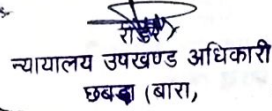 न्यायालय उपखण्ड अधिकारी
छबड़ा (बारा,